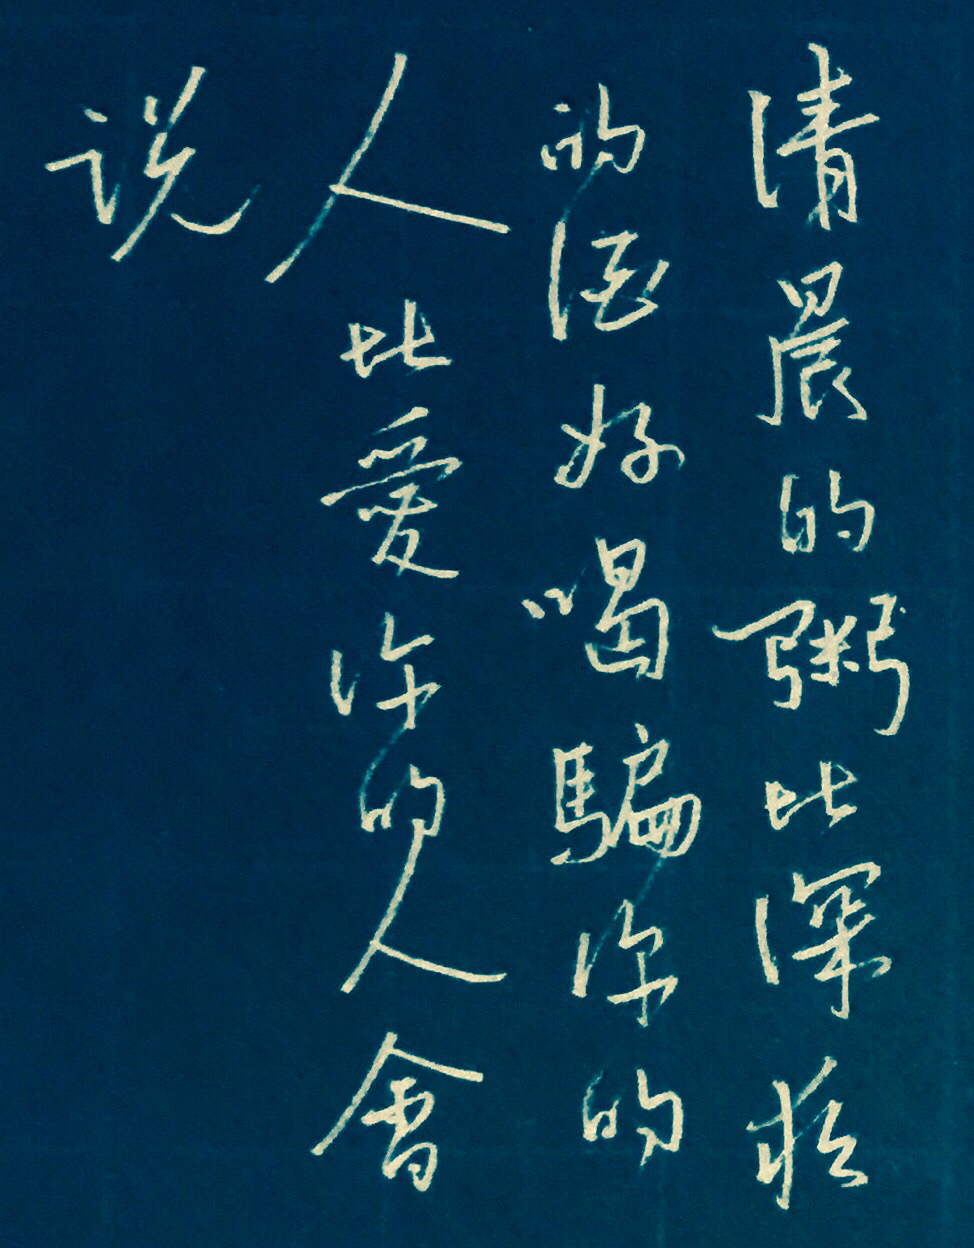 清晨的粥比深夜
的酒好喝騙你的
人比愛你的人會
说